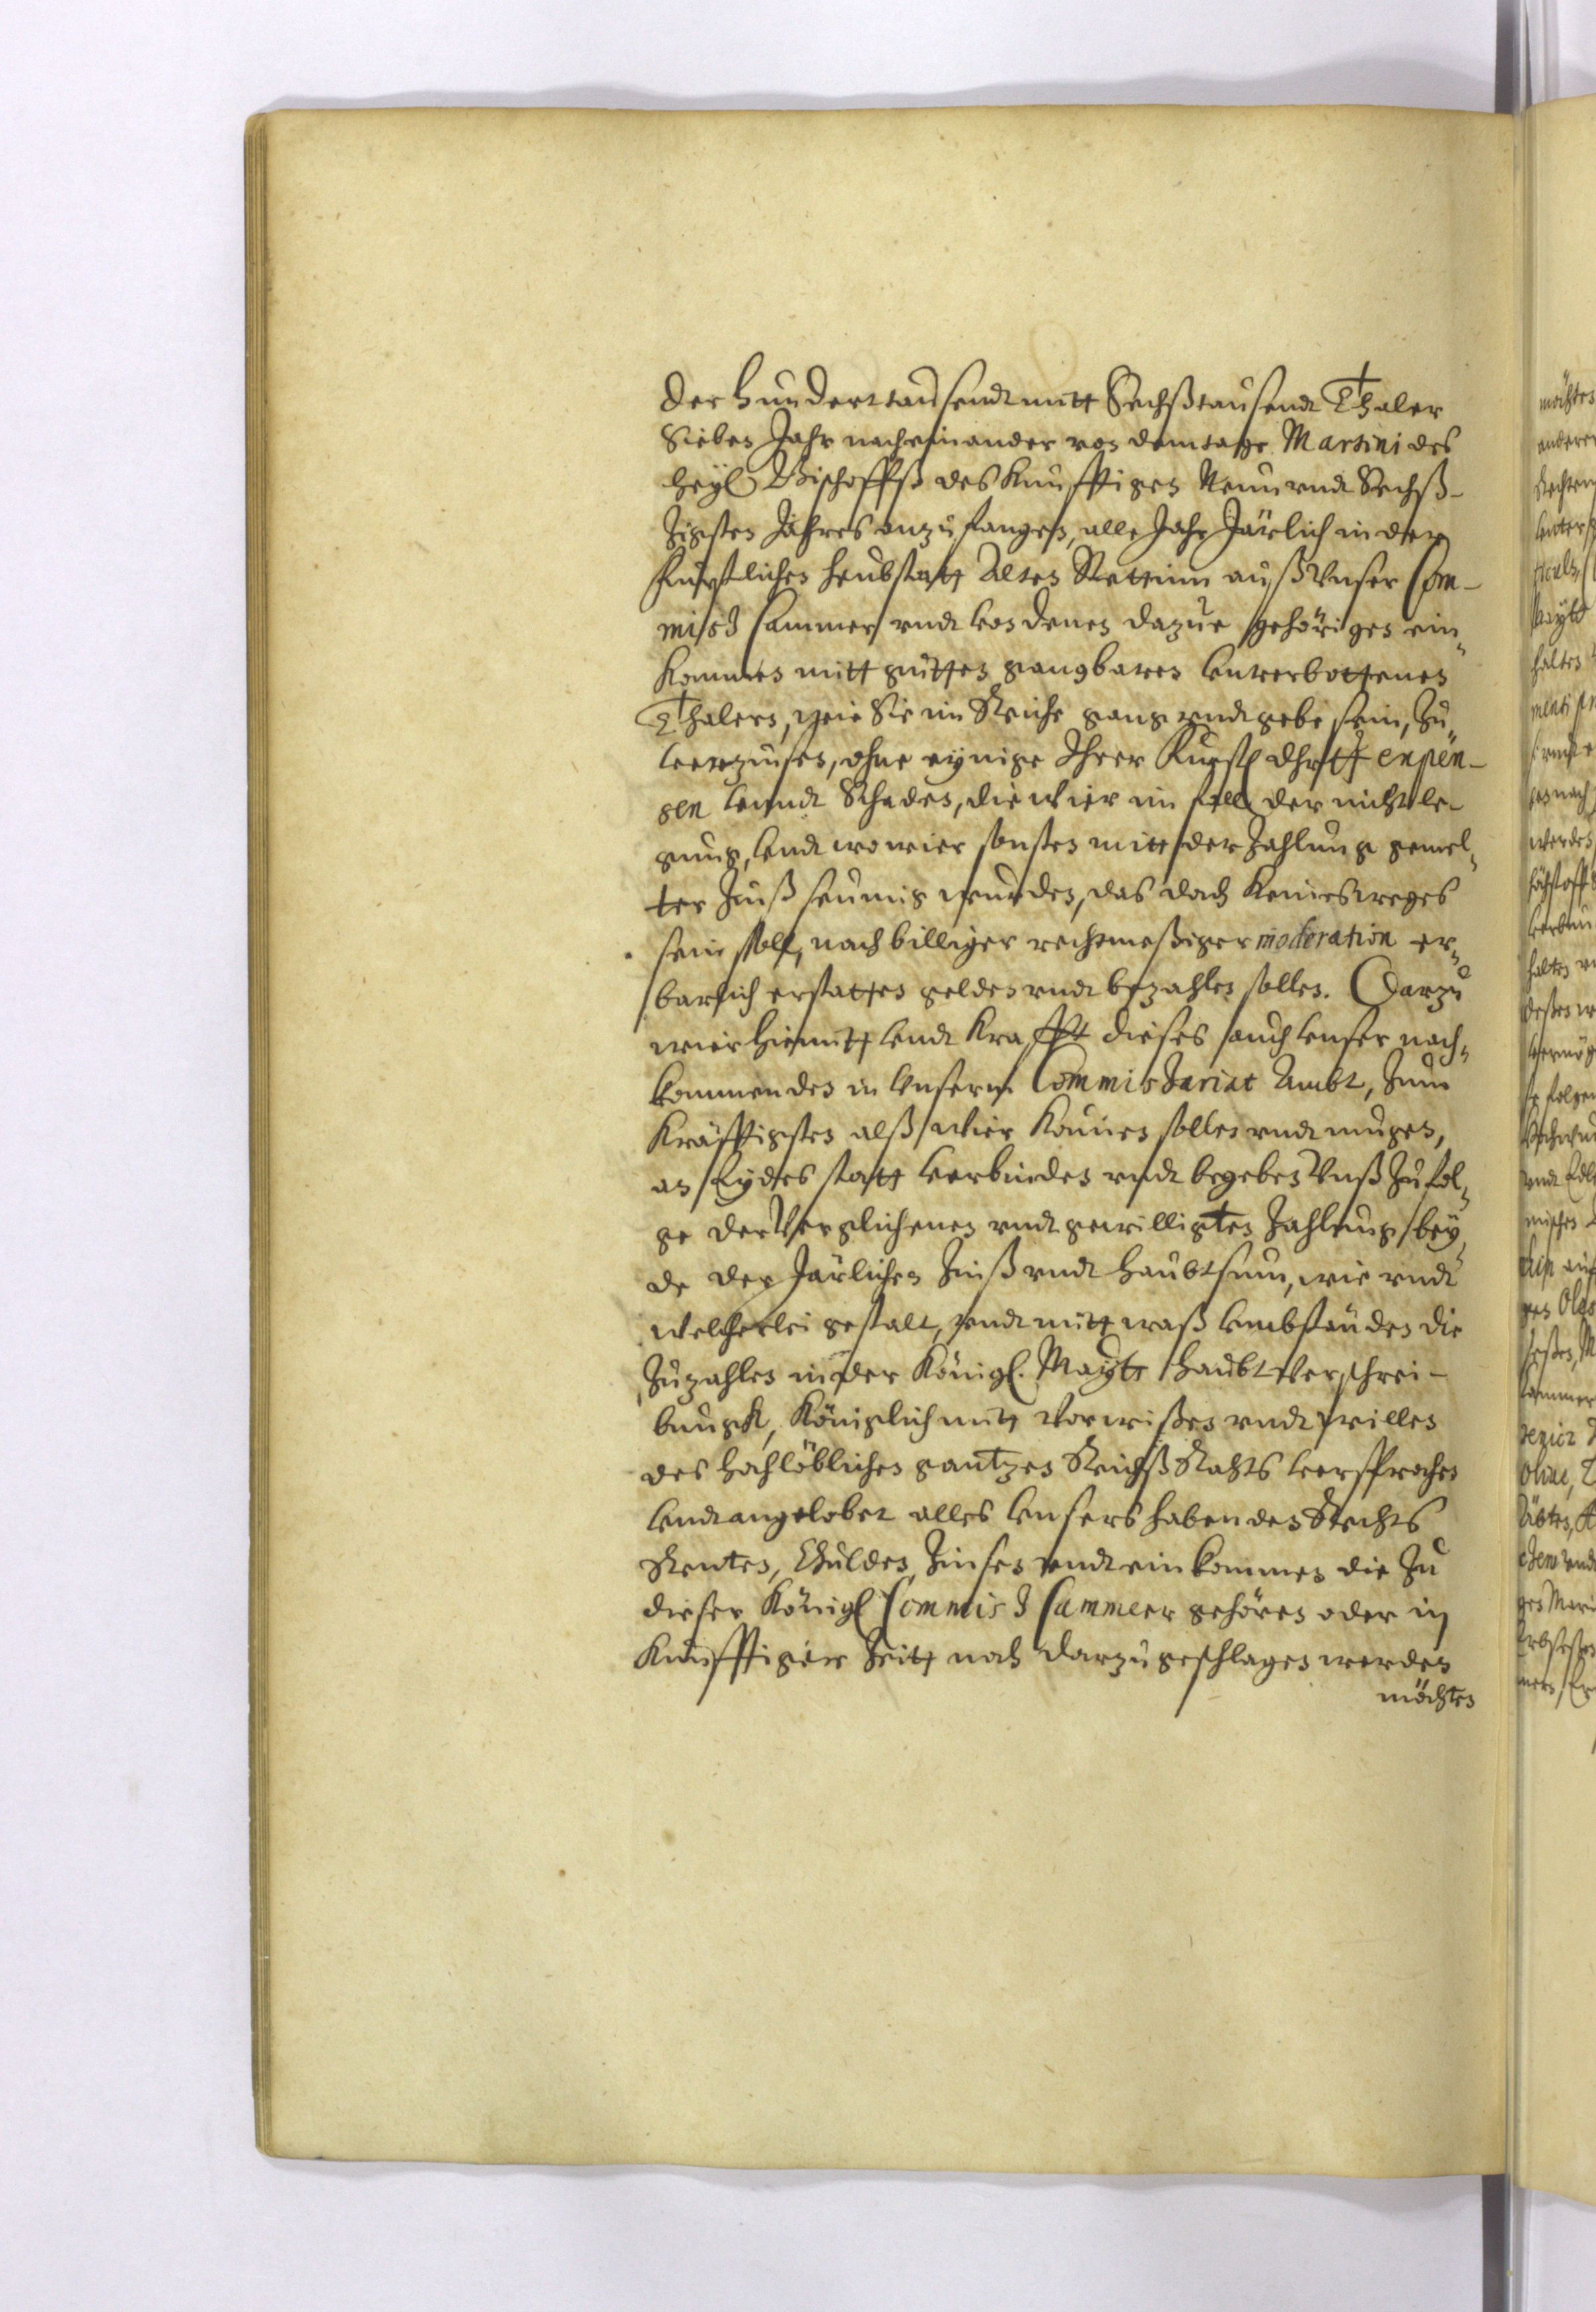 der hundert tausendt mitt Sechßtausendt Thaler
Sieben Jahr nacheinander von dem tage Martini des
heyl Bischoffß des kunfftigen Neun vndt Sechß-
zigsten Jahres anzufangen, alle Jahr Järlich in der
furstlichen heubstatt Alten Stettinn auß Vnser Com-
miss Cammer vndt von denen dazue gehörigen ein-
kommen mitt gutten gangbaren vnverbottenen
Thalern, wie Sie im Reiche gang vndt gebe sein, zu
verzinsen, ohne eynige Ihrer Furstl dhrtt expen-
sen vnndt Schaden, die wier im fall der nichtle-
gung, vndt wo wier sonsten mitt der Zahlung gemel-
ter Zinß seumig wurden, das doch keinesweges
sein soll, nach billiger rechtmeßiger moderation er-
barlich erstatten gelden vndt bezahlen sollen. Darzu
wier hiemitt vndt krafft dieses auch vnser nach-
kommenden in Vnserm Commissariat Ambt, zum
kräfftigsten alß wier konnen sollen vndt mugen,
an Eydes statt verbinden vndt begeben Vnß zufol-
ge der Verglichenen vndt gewilligten Zahlung bey-
de der Järlichen Zinß vndt haubtsum, wie vndt
welcherlei gestalt, vndt mitt waß vmbständen die
zuzahlen in der Königl. Maytt haubt Verschrei-
bungk, Königlich mitt vorwißen vndt willen
des hochlöblichen gantzen Reichß Rahts versprochen
vndt angelobet alles vnsers habenden Rechts
Renten, Schulden, Zinsen vndt einkommen die zu
dieser Königl Commiss Cammer gehören oder in
kunfftiger Zeitt noch darzu geschlagen werden
möchten